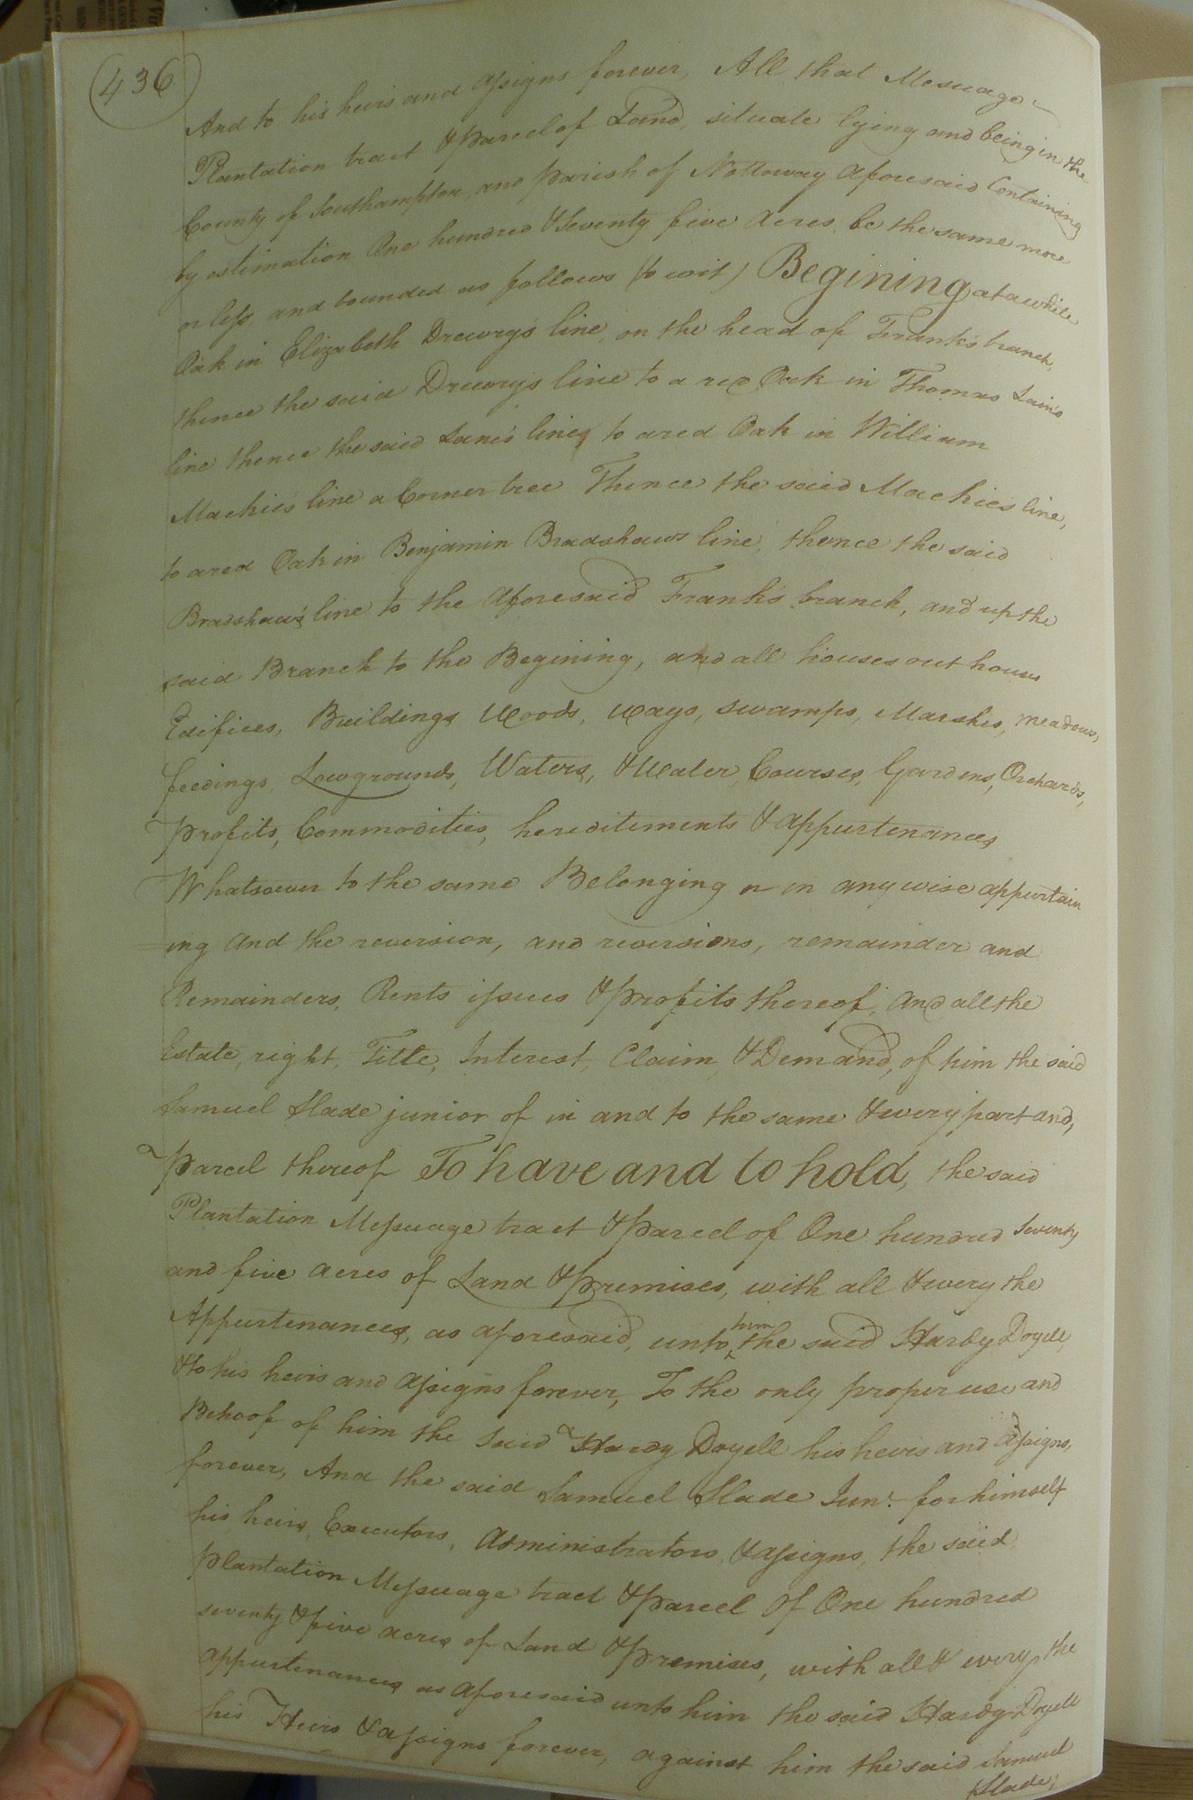 436
And to his heirs and assigns forever, All that Mesuage
Plantation tract & parcel of Land, situate lying and being in the
County of Southampton, and parish of Nottoway aforesaid Containing
by estimation One hundred & Seventy five acres, be the same more
or less, and bounded as follows (to wit) Begining at a white
Oak in Elizabeth Drewrys line, on the head of Frank's branch,
thence the said Drewrys line to a red Oak in Thomas Lain's
line thence the said Lane's lines to a red Oak in William
Mackies line a Corner tree Thence the said Mackies line,
to a red Oak in Benjamin Bradshaws line, thence the said
Bradshaw's line to the aforesaid Frank's branch, and up the
said Branch to the Begining, and all houses out houses
Edifices, Buildings Woods, ways, swamps, Marshes, meadows,
feedings, Lowgrounds, Waters, & Water Courses, Gardens, Orchards,
profits, Commodities, hereditements & appurtenances
Whatsoever to the same Belonging or in any wise appurtain
ing and the reversion, and reversions, remainder and
Remainders, Rents issues & profits thereof, and all the
Estate, right Title, Interest, Claim, & Demand, of him the said
Samuel Slade junior of in and to the same & every part and,
parcel thereof To have and to hold, the said
Plantation Messuage tract & parcel of One hundred Seventy
and five acres of Land & premises, with all & every the
Appurtenances, as aforesaid, unto him the said Hardy Doyell,
& to his heirs and assigns forever, To the only proper use and
Behoof of him the said Hardy Doyell his heirs and assigns,
forever, And the said Samuel Slade Junr. for himself
his heirs, Executors, Administrators, & assigns, the said
plantation Messuage tract & parcel of One hundred
seventy & five acres of Land & premises, with all & every the
appurtenances as aforesaid unto him the said Hardy Doyell
his Heirs & assigns forever, against him the said Samuel
Slade,